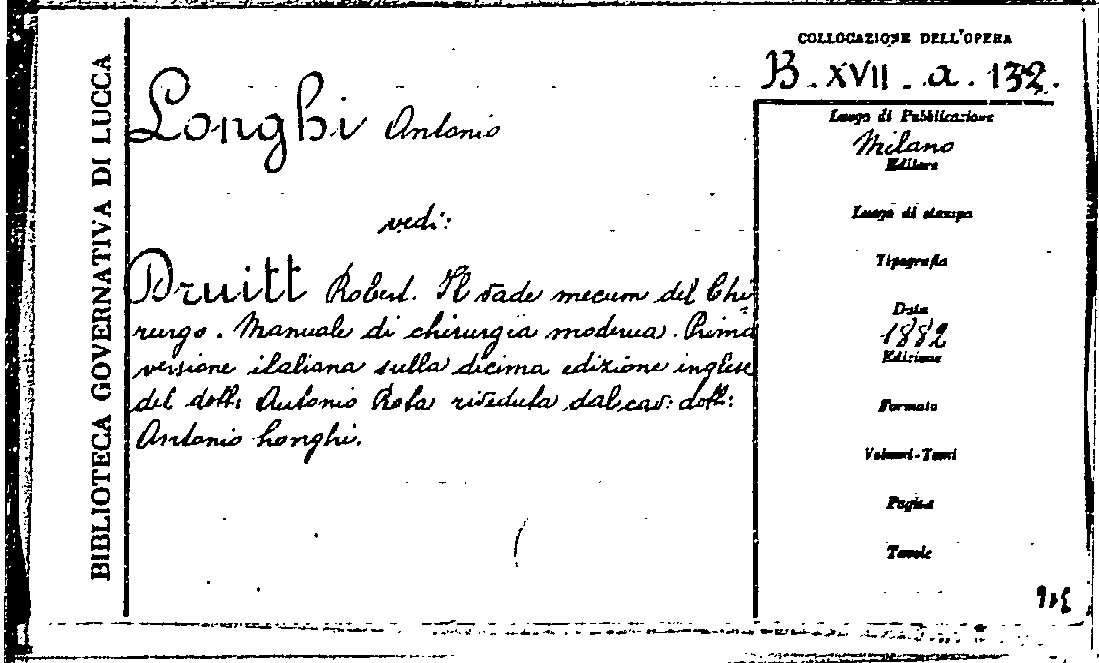 BIBLIOTECA GOVERNATIVA DI LUCCA
Longhi Antonio
vedi:
Druitt Robert. Il vade mecum del Chi-
rurgo. Manuale di chirurgia moderna. Prima
versione italiana sulla decima edizione inglese
del dott: Antonio Rota riveduta dal cav: dott:
Antonio Longhi.
COLLOCAZIONE DELL'OPERA
B. XVII. a. 132.
Luogo di Pubblicazione
Milano
Editore
Luogo di stampa
Tipografia
Data
1882
Edizione
Formato
Volumi-Tomi
Pagine
Tavole